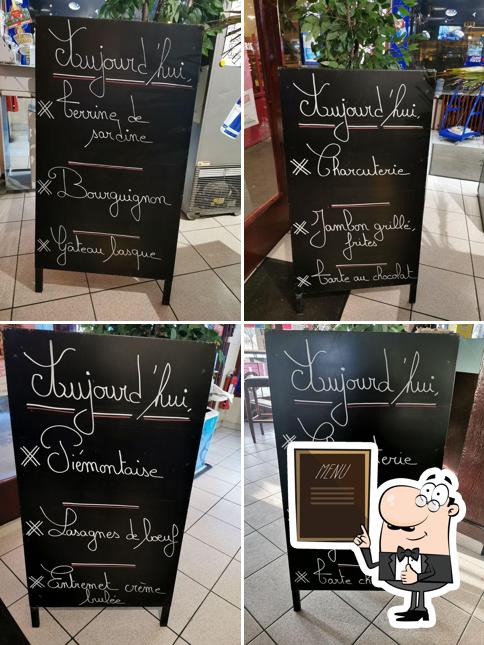 Aujourd'hui,
Terrine de
sardine
Bourguignon
Gâteau basque
Aujourd'hui,
Charcuterie
Jambon grillé,
frites
Tarte au chocolat
Aujourd'hui,
Piémontaise
Lasagnes de bœuf
Entremet crème
brulée
Aujourd'hui,
MENU